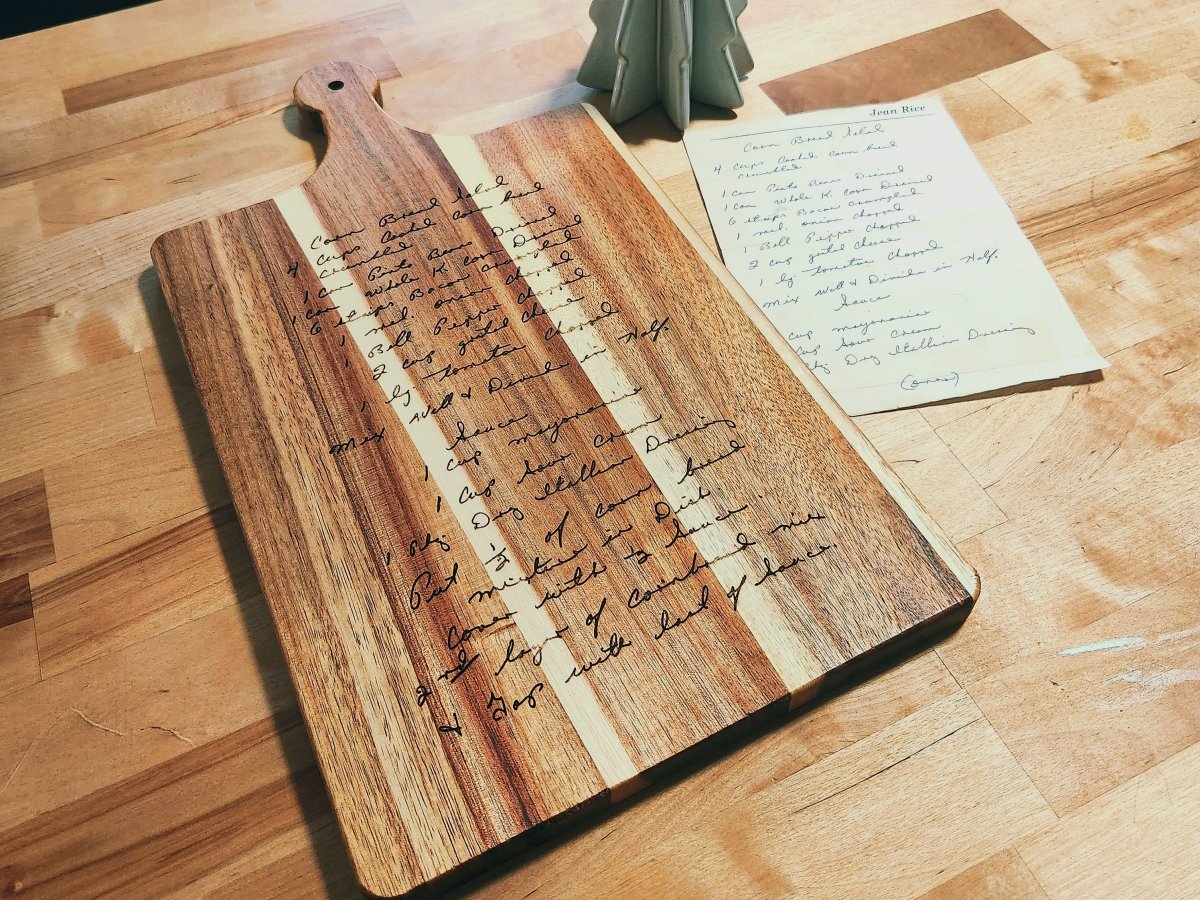 Corn Bread Salad
4 Cups Cooked Corn bread
crumbled
1 can Pinto Bans Drained
1 can Whole K. Corn Drained
6 strips Bacon crumpled
1 med. onion chopped
1 Bell Pepper Chopped
2 cup grated cheese
1 lg tomatoe chopped
Mix well & Divide in Half.
Sauce
1 cup mayonanise
1 Cup Sour Cream
1 Pkg Dry Itallian Dressing
Put 1/2 of corn bread
mixture in Dish
Cover with 1/2 Sauce
2nd layer of cornbread mix
& Top with last of Sauce.
Jean Rice
Corn Bread Salad
4 Cups Cooked Corn bread
crumbled
1 can Pinto Bans Drained
1 can Whole K. Corn Drained
6 strips Bacon crumpled
1 med. onion chopped
1 Bell Pepper Chopped
2 cup grated cheese
1 lg tomatoe chopped
Mix well & Divide in Half.
Sauce
cup mayonanise
Cup Sour Cream
Dry Itallian Dressing
(over)